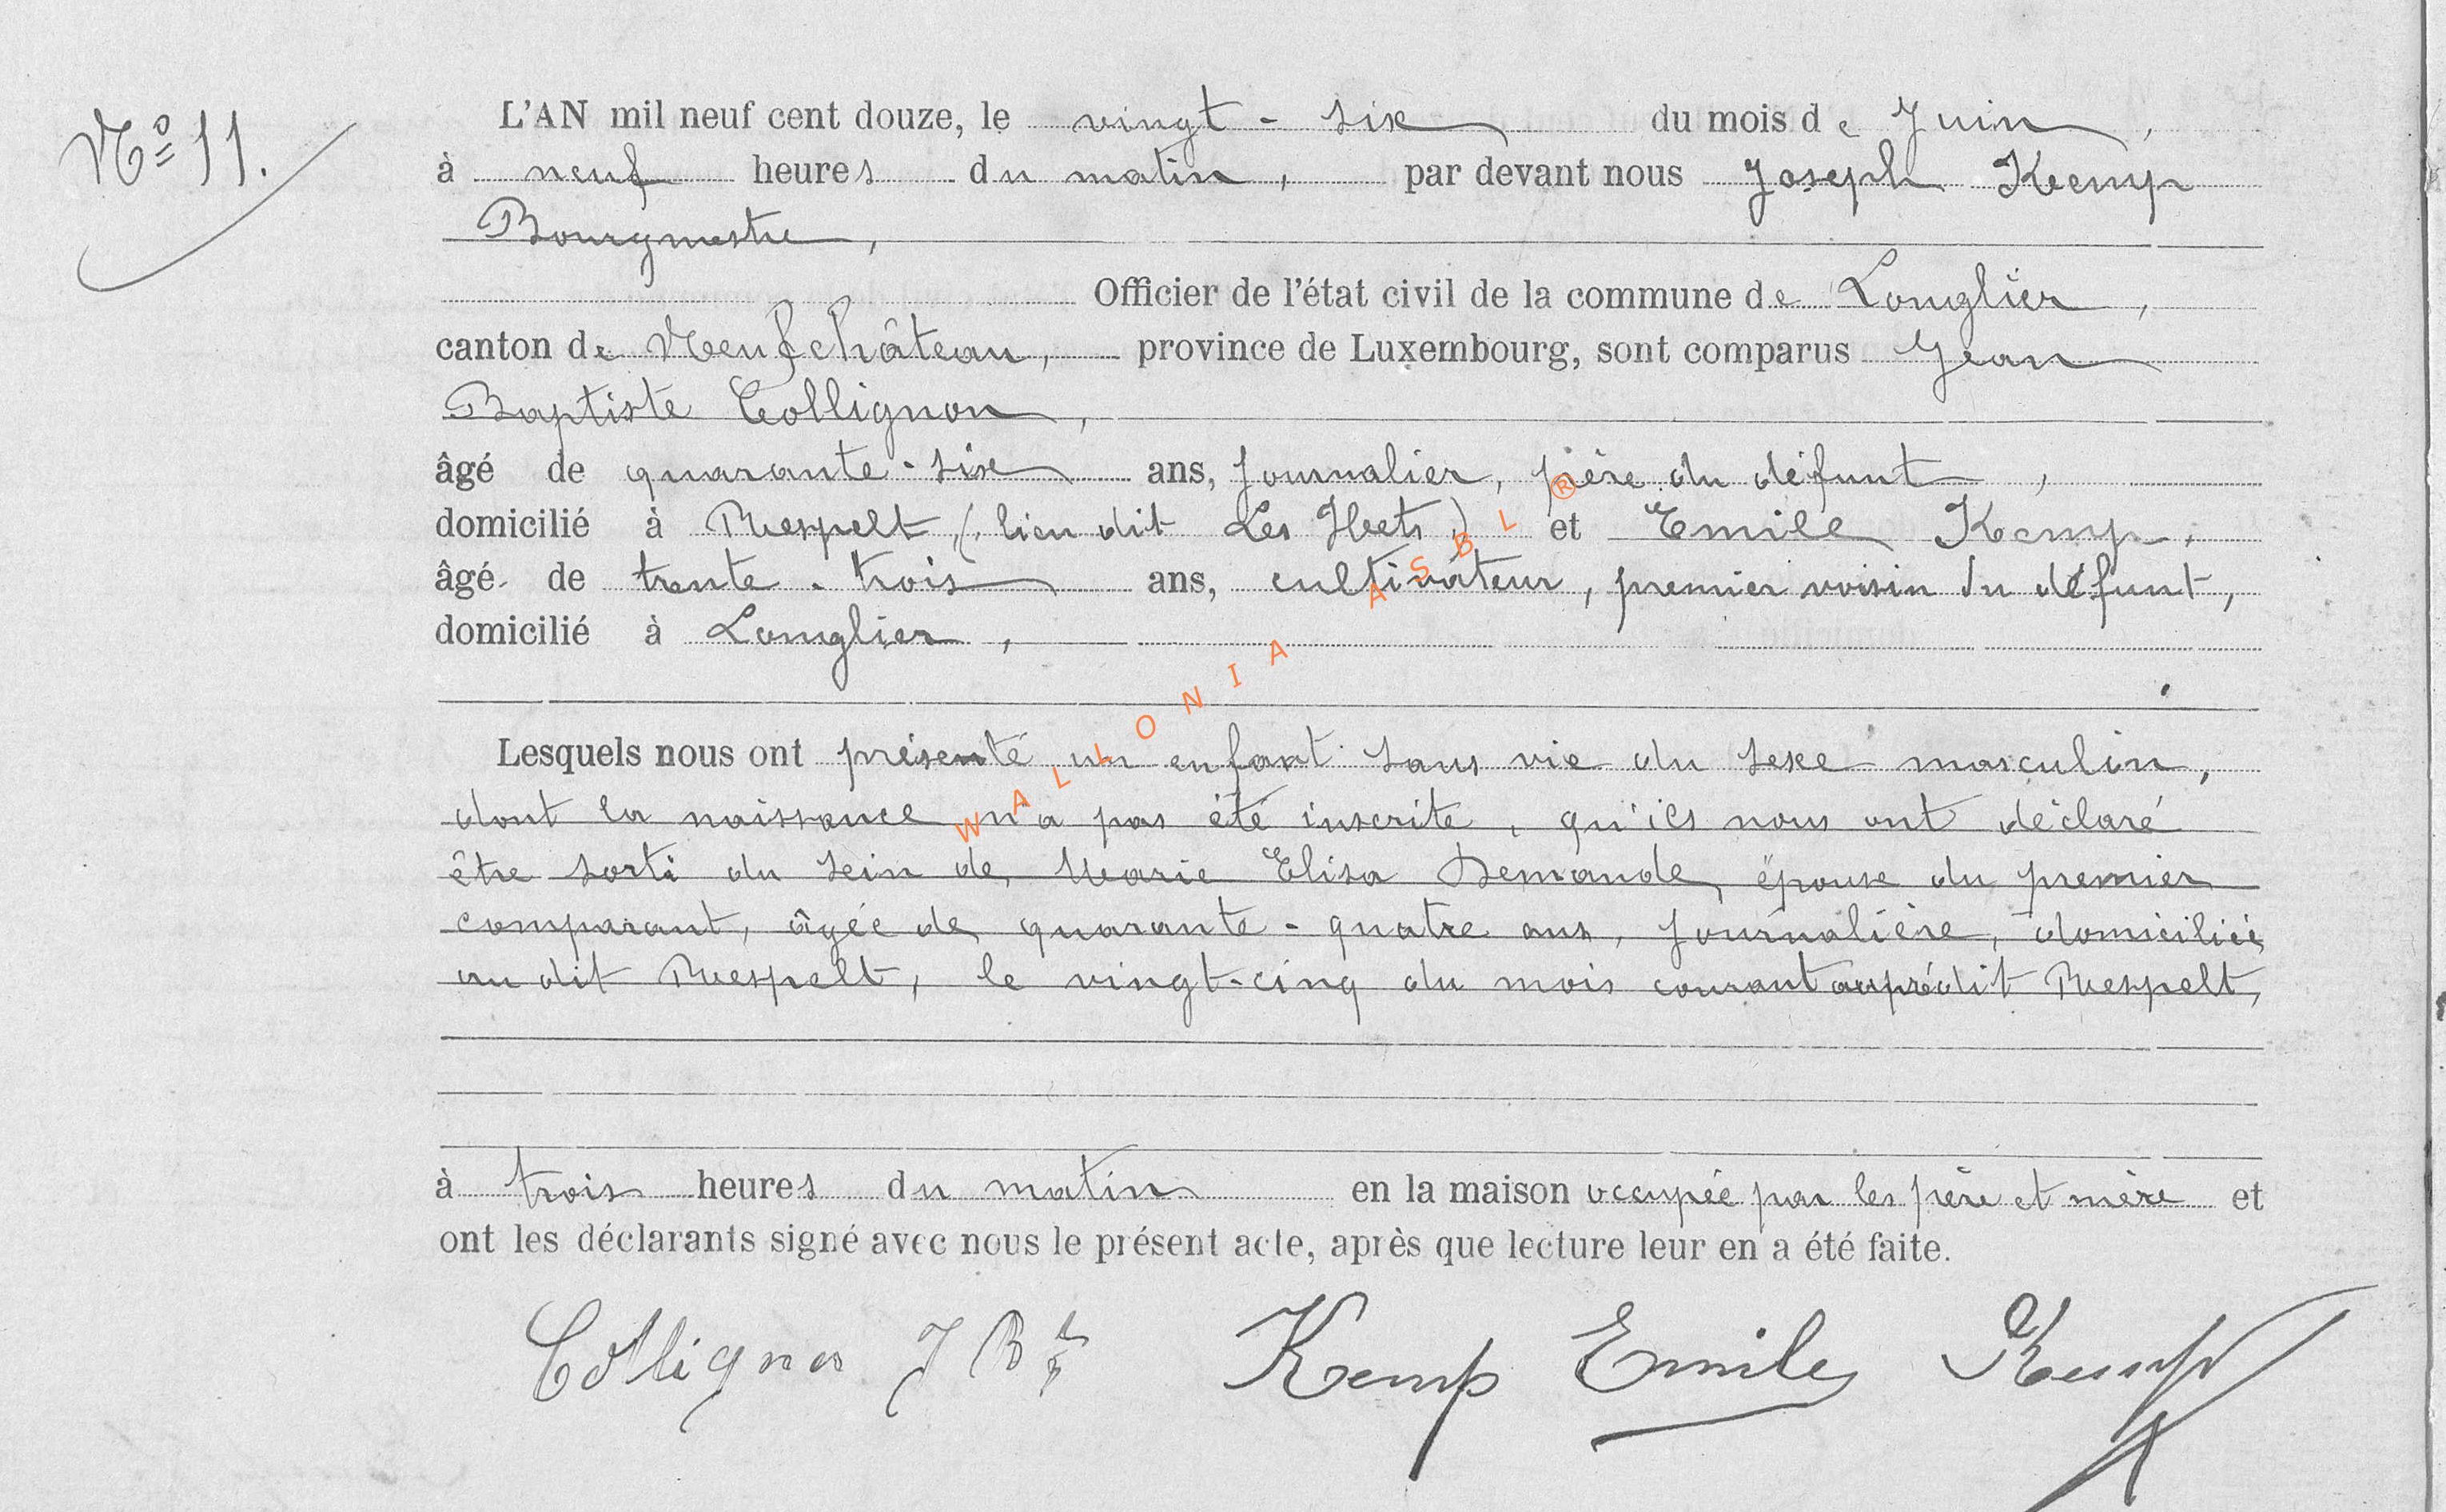 Nº 11.
L'AN mil neuf cent douze, le vingt - six du mois de Juin,
à neuf heures du matin, par devant nous Joseph Kemp
Bourgmestre,
Officier de l'état civil de la commune de Longlier,
canton de Neufchâteau, province de Luxembourg, sont comparus Jean
Baptiste Collignon,
âgé de quarante-six ans, journalier, père du défunt,
domicilié à Respelt, (lieu dit Les Hets,) et Emile Kemp,
âgé de trente-trois ans, cultivateur, premier voisin du défunt,
domicilié à Longlier,
Lesquels nous ont présenté un enfant sans vie du sexe masculin,
dont la naissance n'a pas été inscrite, qu'ils nous ont déclaré
être sorti du sein de Marie Elisa Demande, épouse du premier
comparant, âgée de quarante-quatre ans, journalière, domiciliée
au dit Respelt, le vingt-cinq du mois courant au prédit Respelt,
à trois heures du matin en la maison occupée par les père et mère et
ont les déclarants signé avec nous le présent acte, après que lecture leur en a été faite.
Collignon J Bte Kemp Emile Kemp
WALLONIA ASBL ®